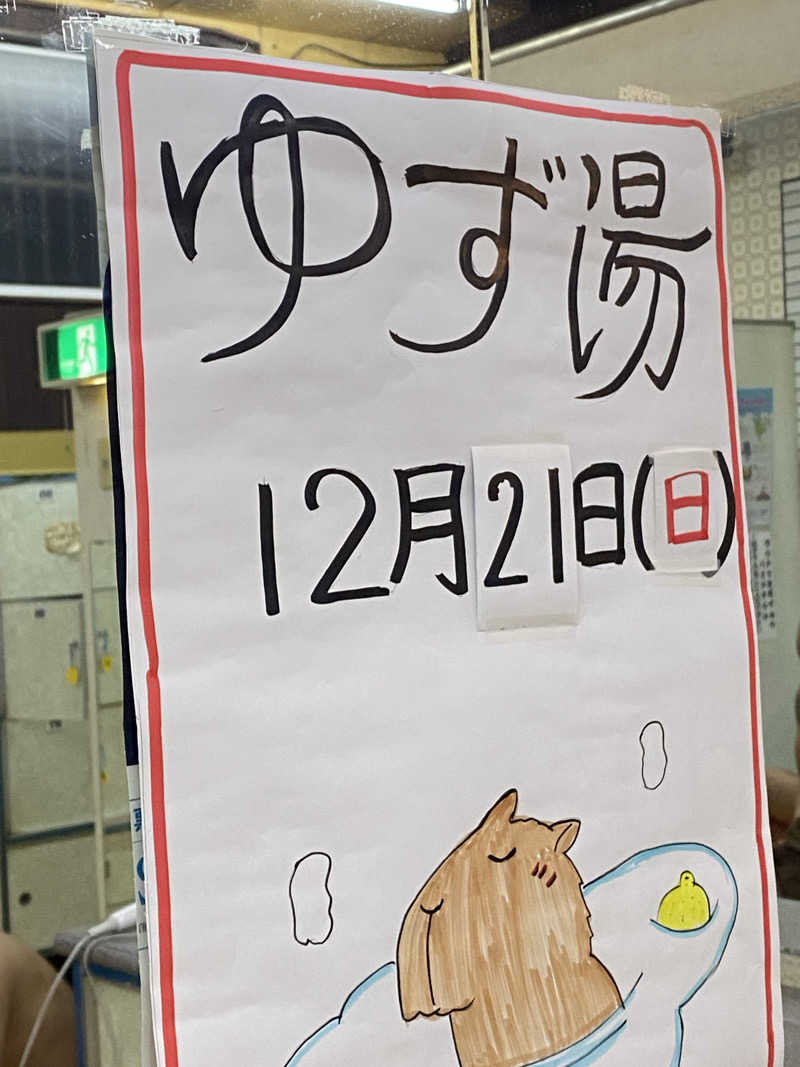 ゆず湯
12月21日(日)